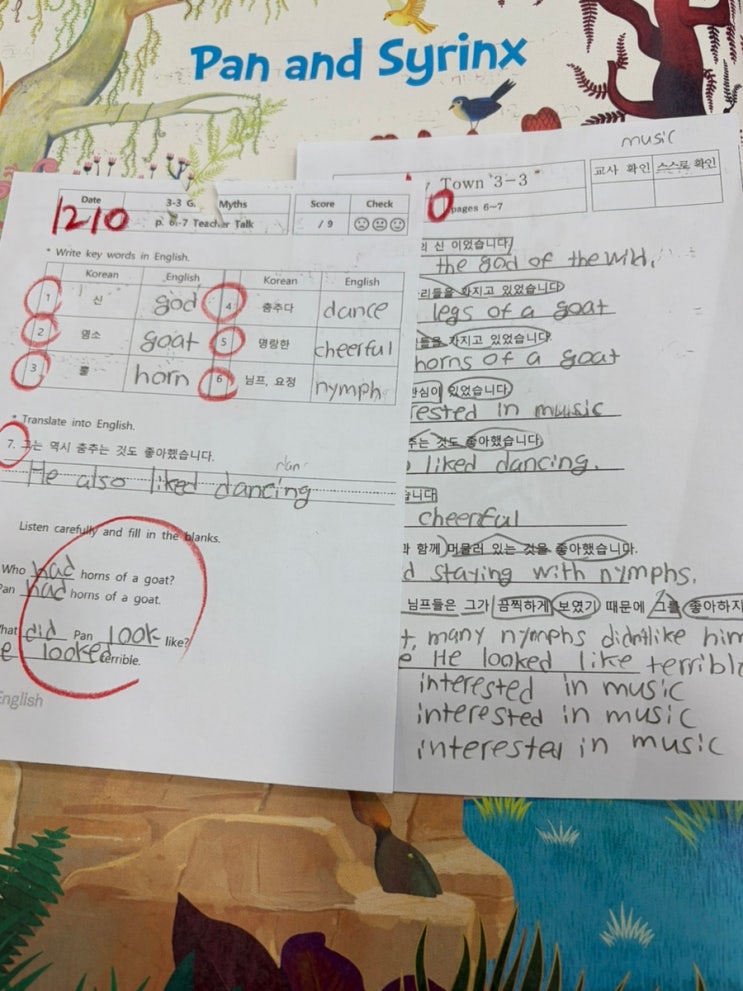 Pan and Syrinx
music
Town 3-3
pages 6~7
교사 확인 스스로 확인
Date 3-3 G. Myths Score Check
1210 p. 6-7 Teacher Talk / 9
* Write key words in English.
Korean English Korean English
1 신 god 4 춤추다 dance
2 염소 goat 5 명랑한 cheerful
3 뿔 horn 6 님프, 요정 nymph
* Translate into English.
7. 그는 역시 춤추는 것도 좋아했습니다.
He also liked dancing
Listen carefully and fill in the blanks.
Who had horns of a goat?
had horns of a goat.
did Pan look like?
looked terrible.
English
신 이었습니다
the god of the wild.
가지고 있었습니다
legs of a goat
가지고 있었습니다
horns of a goat
있었습니다
in muusic
것도 좋아했습니다
liked dancing.
cheerful
함께 머물러 있는 것을 좋아했습니다.
staying with nymphs.
님프들은 그가 끔찍하게 보였기 때문에 그를 좋아하지
many nymphs didntlike him
He looked like
interested in music
interested in music
interested in music